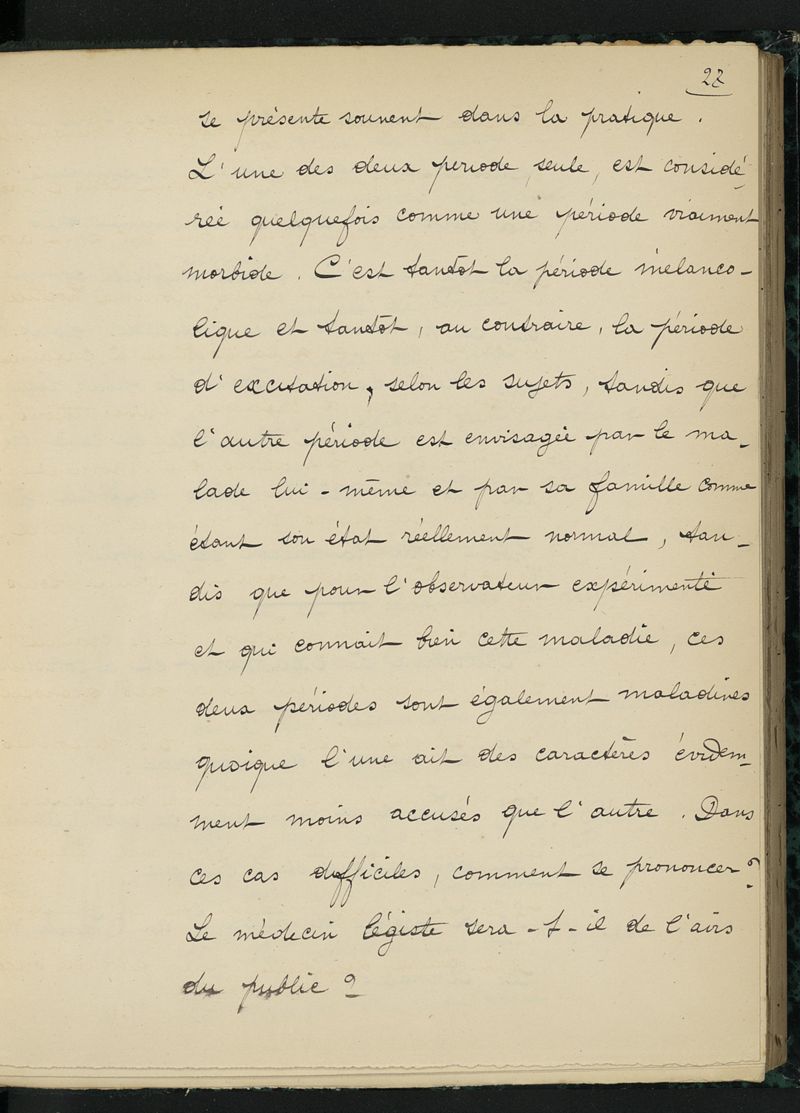 27
se présente souvent dans la pratique.
L'une des deux periode, seule, est considé
rée quelquefois comme une période vraiment
morbide. C'est tantôt la période mélanco-
lique et tantôt, au contraire, la période
d'excitation, selon les sujets, tandis que
l'autre période est envisagée par le ma-
lade lui-même et par sa famille comme
étant son état réellement normal, tan-
dis que pour l'observateur expérimenté
et qui connait bien cette maladie, ces
deux périodes sont également maladives
quoique l'une ait des caractères évidem-
ment moins accusés que l'autre. Dans
ces cas difficiles, comment se prononcer?
Le médecin légiste sera-t-il de l'avis
du public?